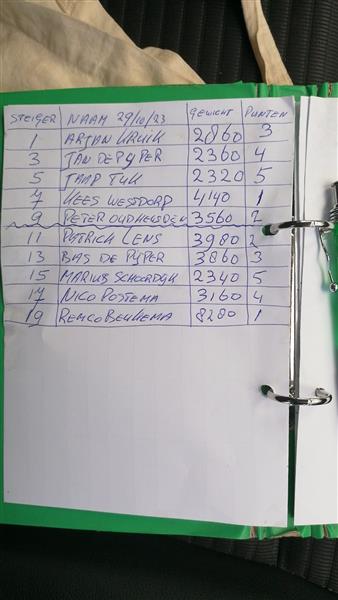 STEIGER NAAM 29/10/23 GEWICHT PUNTEN
1 ARJAN KRUIK 2860 3
3 JAN DE PYPER 2360 4
5 JAAP TUK 2320 5
7 KEES WESTDORP 4140 1
9 PETER OUDHEUSDEN 3560 2
11 PATRICK LENS 3980 2
13 BAS DE PYPER 3860 3
15 MARIUS SCHOORDYK 2340 5
17 NICO POSTEMA 3160 4
19 REMCO BEUKEMA 8280 1